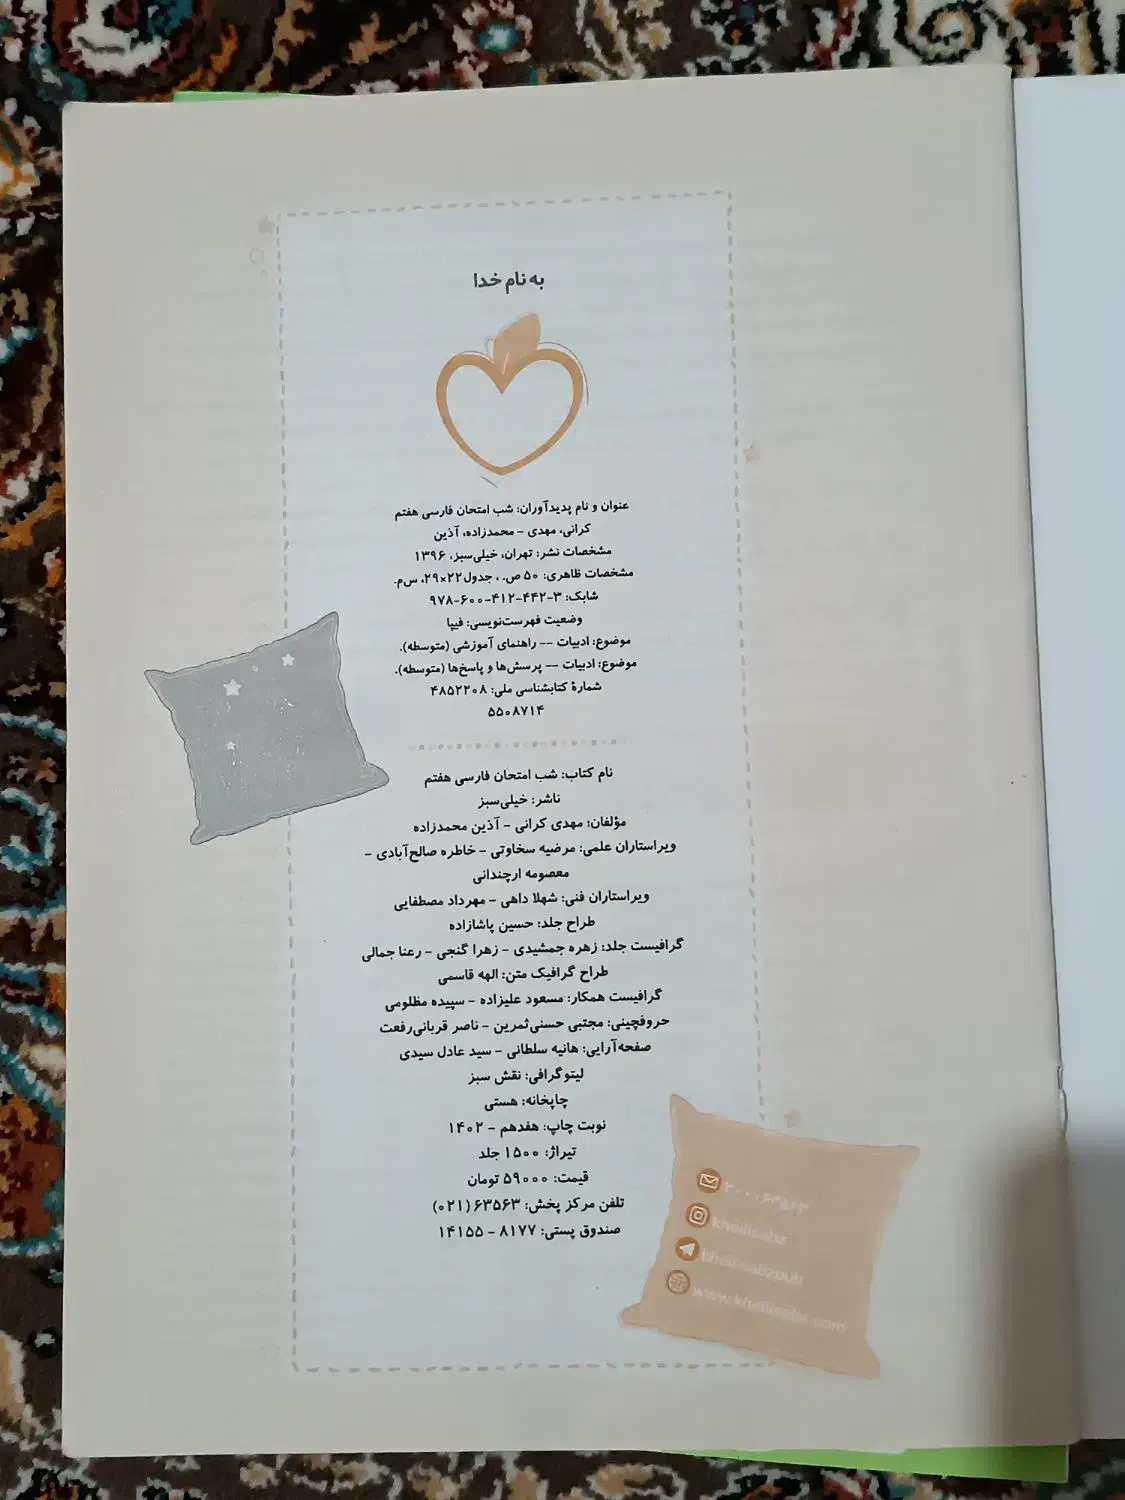 به نام خدا
عنوان و نام پدیدآوران: شب امتحان فارسی هفتم
کرانی، مهدی - محمدزاده، آذین
مشخصات نشر: تهران، خیلی‌سبز، ۱۳۹۶
مشخصات ظاهری: ۵۰ ص. ، جدول۲۲×۲۹، س‌م.
شابک: ۳-۴۴۲-۴۱۲-۶۰۰-۹۷۸
وضعیت فهرست‌نویسی: فیپا
موضوع: ادبیات -- راهنمای آموزشی (متوسطه).
موضوع: ادبیات -- پرسش‌ها و پاسخ‌ها (متوسطه).
شمارهٔ کتابشناسی ملی: ۴۸۵۲۲۰۸
۵۵۰۸۷۱۴
نام کتاب: شب امتحان فارسی هفتم
ناشر: خیلی‌سبز
مؤلفان: مهدی کرانی - آذین محمدزاده
ویراستاران علمی: مرضیه سخاوتی - خاطره صالح‌آبادی -
معصومه ارچندانی
ویراستاران فنی: شهلا داهی - مهرداد مصطفایی
طراح جلد: حسین پاشازاده
گرافیست جلد: زهره جمشیدی - زهرا گنجی - رعنا جمالی
طراح گرافیک متن: الهه قاسمی
گرافیست همکار: مسعود علیزاده - سپیده مظلومی
حروفچینی: مجتبی حسنی‌ثمرین - ناصر قربانی‌رفعت
صفحه‌آرایی: هانیه سلطانی - سید عادل سیدی
لیتوگرافی: نقش سبز
چاپخانه: هستی
نوبت چاپ: هفدهم - ۱۴۰۲
تیراژ: ۱۵۰۰ جلد
قیمت: ۵۹۰۰۰ تومان
تلفن مرکز پخش: ۶۳۵۶۳ (۰۲۱)
صندوق پستی: ۸۱۷۷ - ۱۴۱۵۵
kheilisabz
kheilisabzpub
www.kheilisabz.com